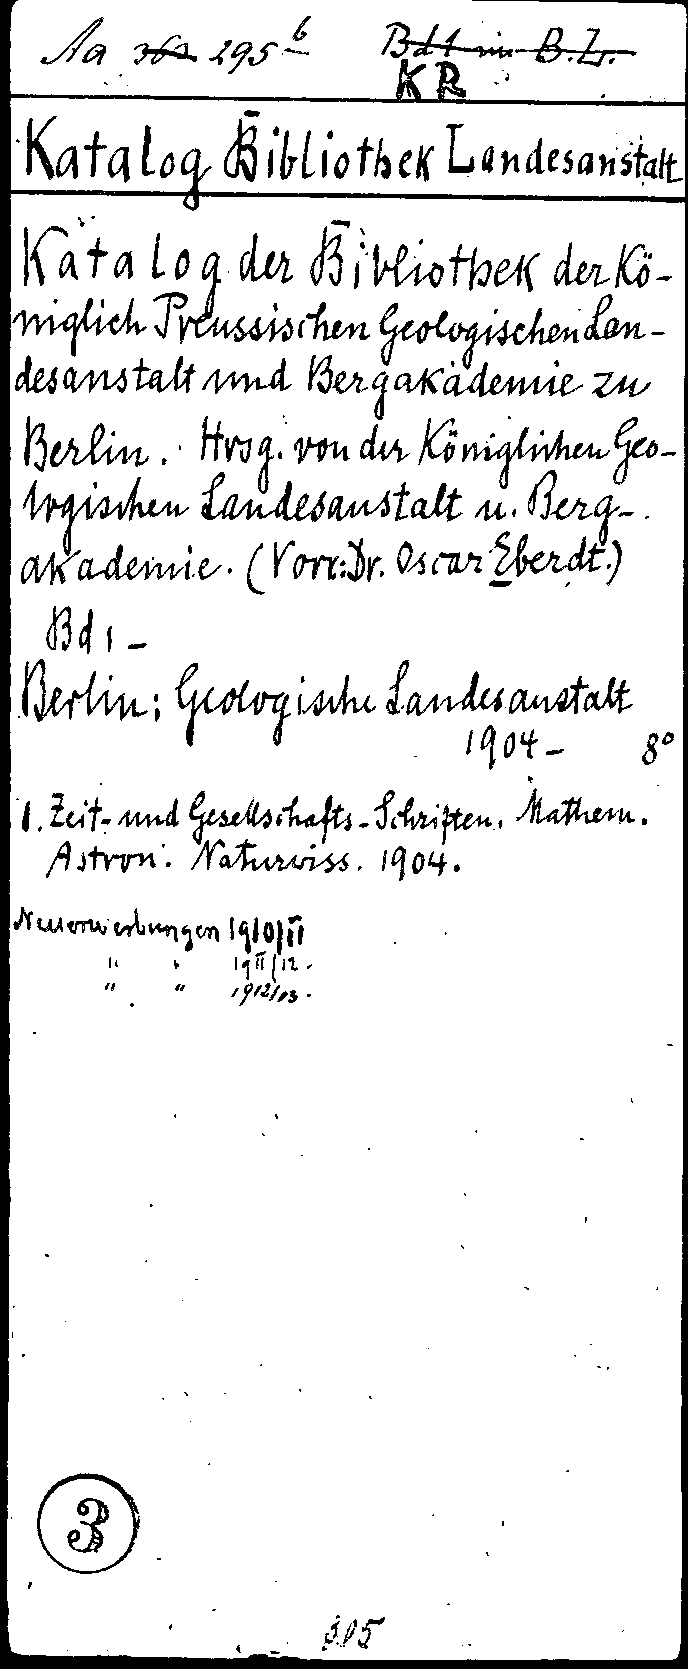 Aa 363 295 b Bd 1 im B.Z.
KR
Katalog Bibliothek Landesanstalt
Katalog der Bibliothek der Kö-
niglich Preussischen Geologischen Lan-
desanstalt und Bergakademie zu
Berlin. Hrsg. von der Königlichen Geo-
logischen Landesanstalt u. Berg-
akademie. (Vorr.: Dr. Oscar Eberdt.)
Bd 1 -
Berlin: Geologische Landesanstalt
1904 - 8°
1. Zeit- und Gesellschafts-Schriften. Mathem.
Astron. Naturwiss. 1904.
Neuerwerbungen 1910/11
" " 1911/12.
" " 1912/13.
3
305